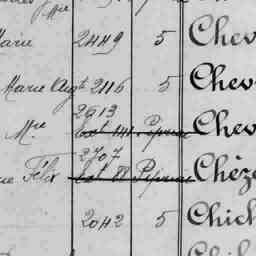 Mme
Marie 2449 5 Chev
Marie Augte 2116 5 Chev
2913
Mme Chev
2707
Félix Chéze
2042 5 Chich